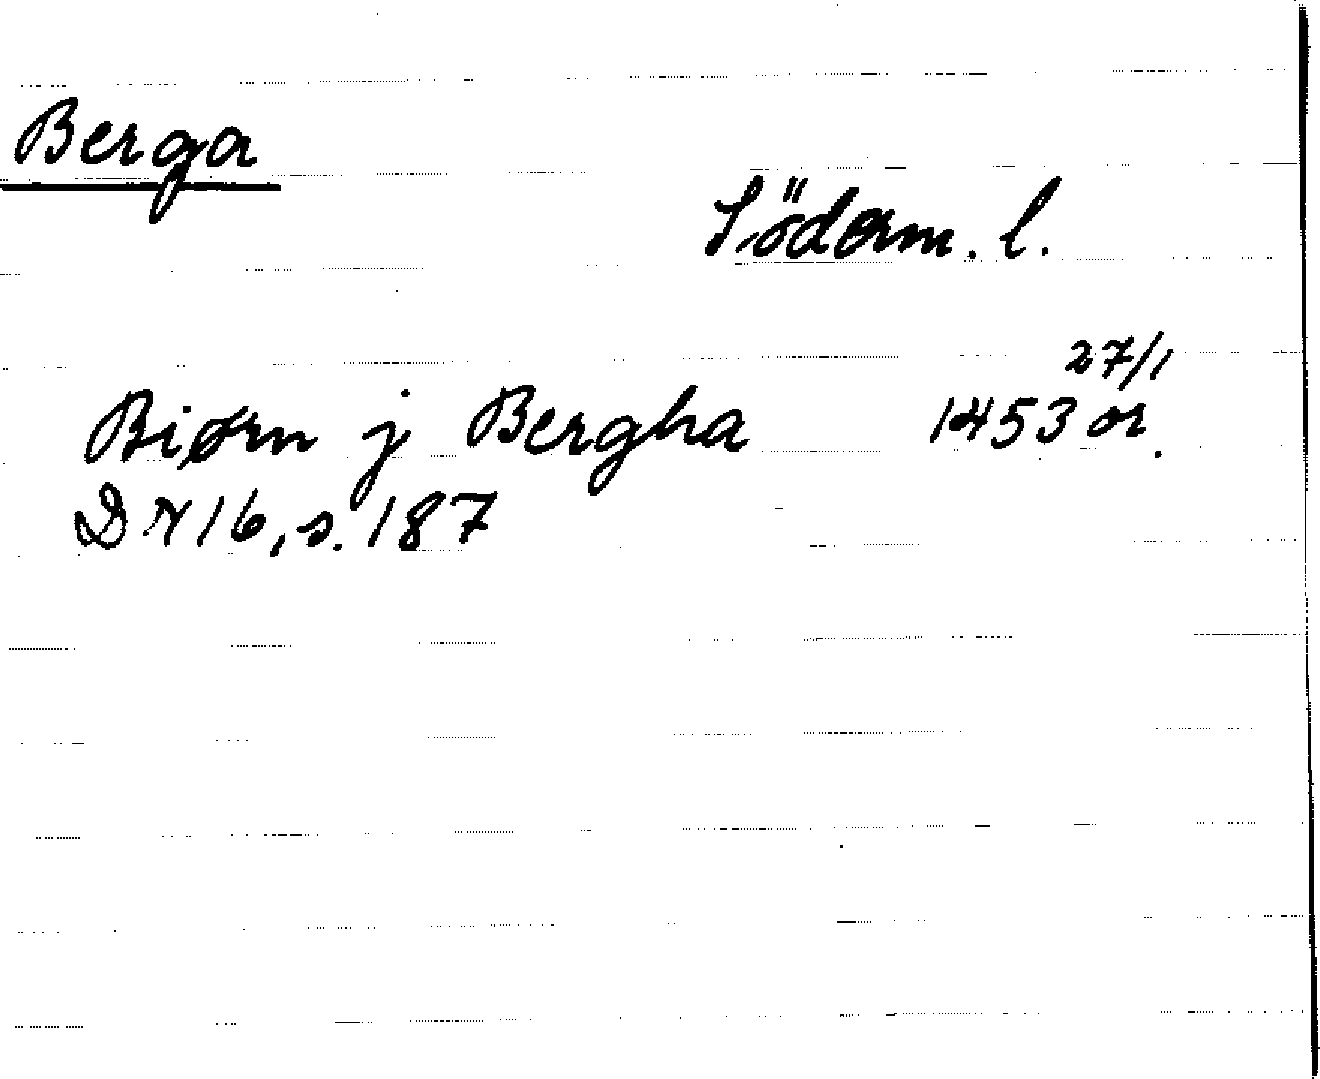 Berga
Söderm. l.
27/1
Biørn j Bergha 1453 or.
DN 16, s. 187